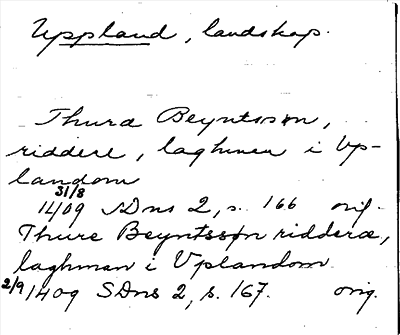 Uppland, landskap.
Thurd Beyntsson,
riddere, laghman i Vp-
landom
31/8
1409 SDns 2, s. 166 orig.
Thure Beyntsson ridderæ,
laghman i Vplandom
2/9 1409 SDns 2, s. 167. orig.